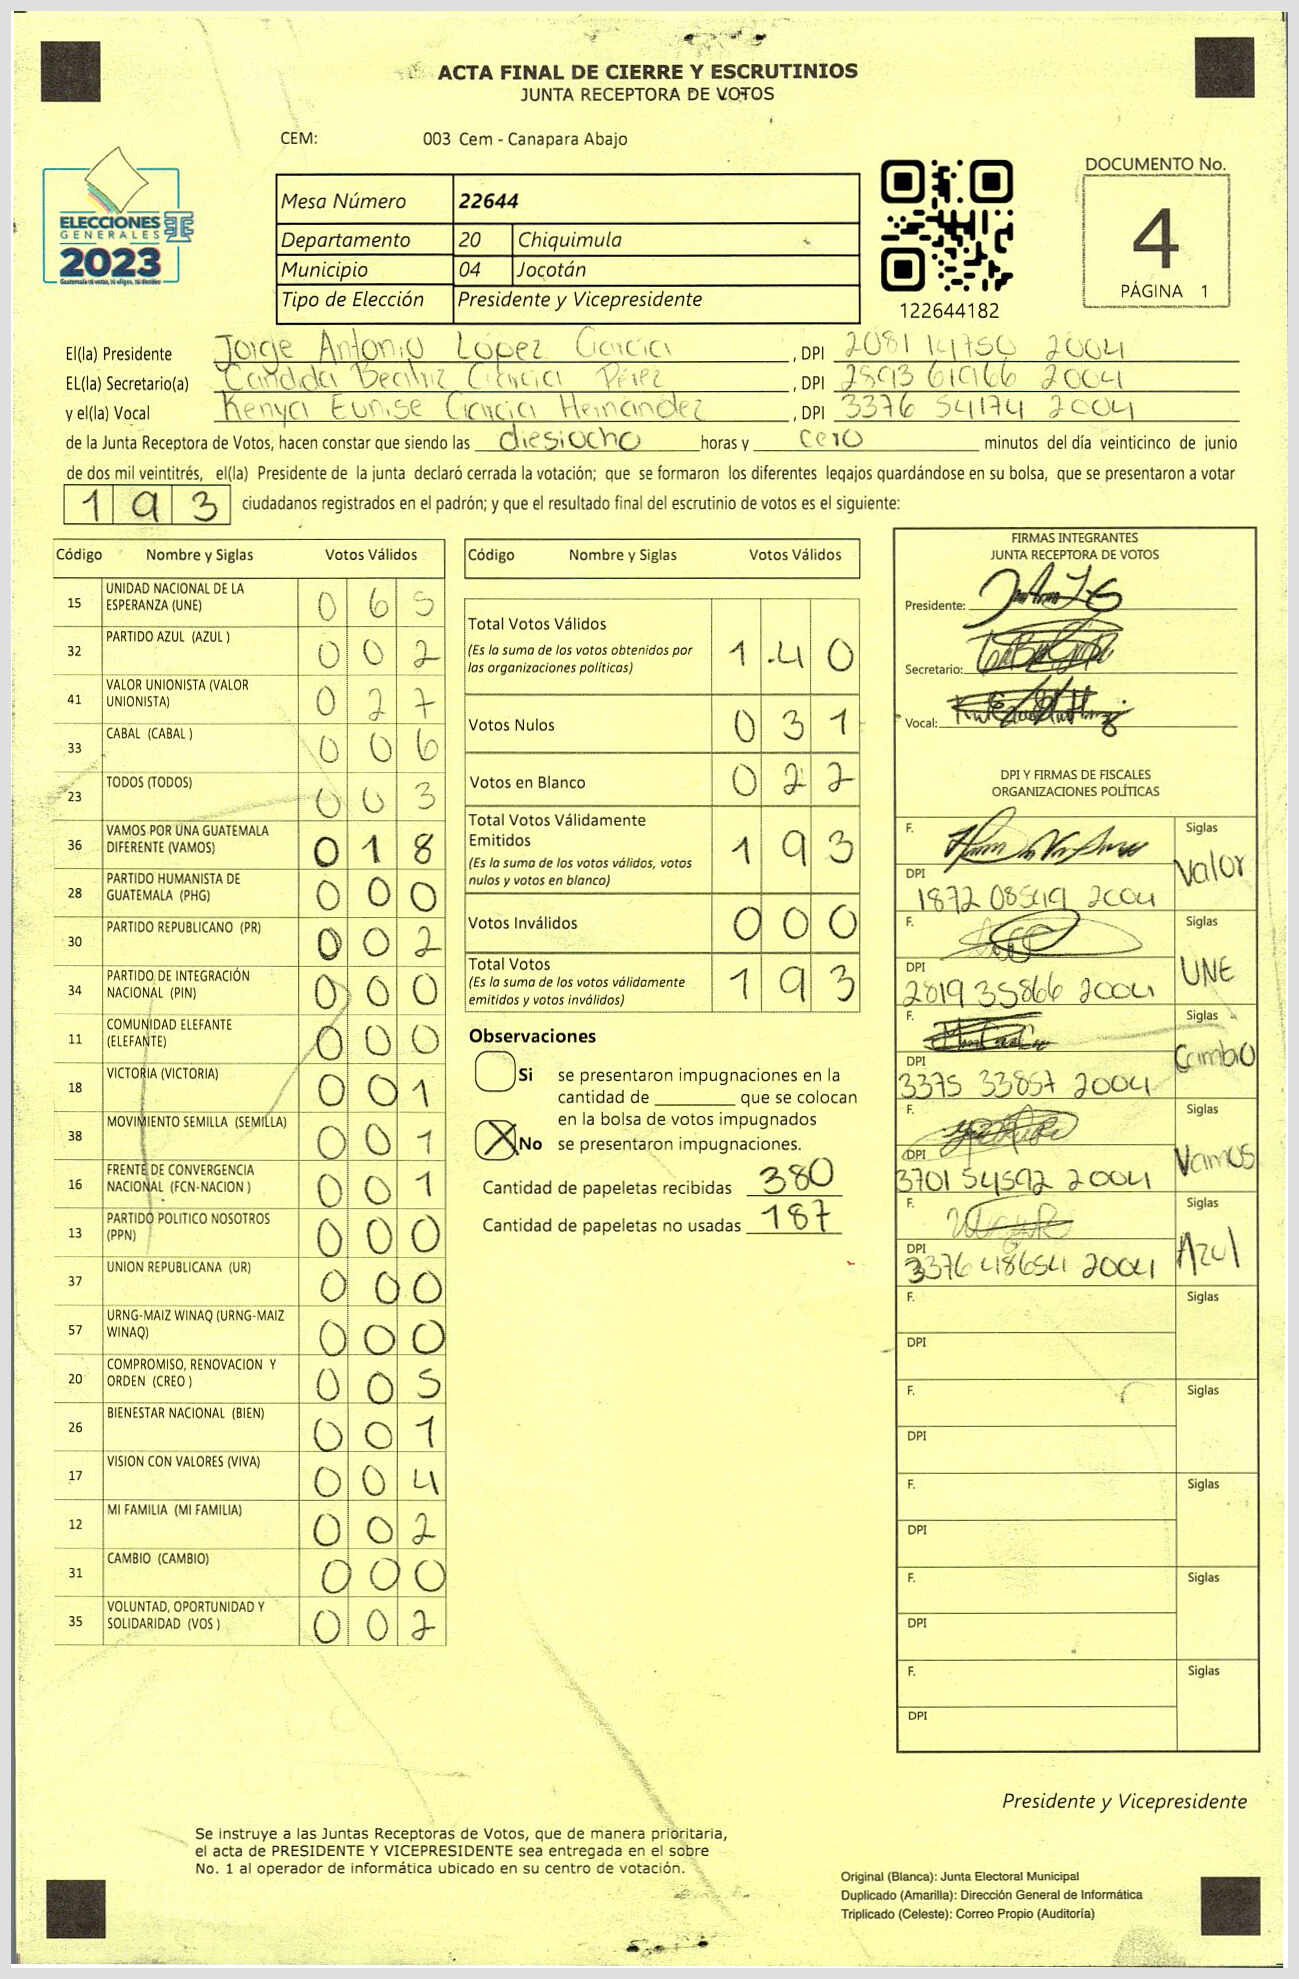 ACTA FINAL DE CIERRE Y ESCRUTINIOS
JUNTA RECEPTORA DE VOTOS
CEM: 003 Cem - Canapara Abajo
ELECCIONES
GENERALES
2023
Guatemala tú votas, tú eliges, tú decides
Mesa Número 22644
Departamento 20 Chiquimula
Municipio 04 Jocotán
Tipo de Elección Presidente y Vicepresidente
122644182
DOCUMENTO No.
4
PÁGINA 1
El(la) Presidente Jorge Antonio López García , DPI 2081 14750 2004
EL(la) Secretario(a) Candida Beatriz García Pérez , DPI 2893 61966 2004
y el(la) Vocal Kenya Eunise García Hernández , DPI 3376 54174 2004
de la Junta Receptora de Votos, hacen constar que siendo las diesiocho horas y cero minutos del día veinticinco de junio
de dos mil veintitrés, el(la) Presidente de la junta declaró cerrada la votación; que se formaron los diferentes legajos quardándose en su bolsa, que se presentaron a votar
193 ciudadanos registrados en el padrón; y que el resultado final del escrutinio de votos es el siguiente:
Código Nombre y Siglas Votos Válidos
15 UNIDAD NACIONAL DE LA ESPERANZA (UNE) 0 6 5
32 PARTIDO AZUL (AZUL ) 0 0 2
41 VALOR UNIONISTA (VALOR UNIONISTA) 0 2 7
33 CABAL (CABAL ) 0 0 6
23 TODOS (TODOS) 0 0 3
36 VAMOS POR UNA GUATEMALA DIFERENTE (VAMOS) 0 1 8
28 PARTIDO HUMANISTA DE GUATEMALA (PHG) 0 0 0
30 PARTIDO REPUBLICANO (PR) 0 0 2
34 PARTIDO DE INTEGRACIÓN NACIONAL (PIN) 0 0 0
11 COMUNIDAD ELEFANTE (ELEFANTE) 0 0 0
18 VICTORIA (VICTORIA) 0 0 1
38 MOVIMIENTO SEMILLA (SEMILLA) 0 0 1
16 FRENTE DE CONVERGENCIA NACIONAL (FCN-NACION ) 0 0 1
13 PARTIDO POLITICO NOSOTROS (PPN) 0 0 0
37 UNION REPUBLICANA (UR) 0 0 0
57 URNG-MAIZ WINAQ (URNG-MAIZ WINAQ) 0 0 0
20 COMPROMISO, RENOVACION Y ORDEN (CREO ) 0 0 5
26 BIENESTAR NACIONAL (BIEN) 0 0 1
17 VISION CON VALORES (VIVA) 0 0 4
12 MI FAMILIA (MI FAMILIA) 0 0 2
31 CAMBIO (CAMBIO) 0 0 0
35 VOLUNTAD, OPORTUNIDAD Y SOLIDARIDAD (VOS ) 0 0 2
Código Nombre y Siglas Votos Válidos
Total Votos Válidos 1 4 0
(Es la suma de los votos obtenidos por
las organizaciones políticas)
Votos Nulos 0 3 1
Votos en Blanco 0 2 2
Total Votos Válidamente
Emitidos 1 9 3
(Es la suma de los votos válidos, votos
nulos y votos en blanco)
Votos Inválidos 0 0 0
Total Votos 1 9 3
(Es la suma de los votos válidamente
emitidos y votos inválidos)
Observaciones
Si se presentaron impugnaciones en la
cantidad de ________ que se colocan
en la bolsa de votos impugnados
X No se presentaron impugnaciones.
Cantidad de papeletas recibidas 380
Cantidad de papeletas no usadas 187
FIRMAS INTEGRANTES
JUNTA RECEPTORA DE VOTOS
Presidente:
Secretario:
Vocal:
DPI Y FIRMAS DE FISCALES
ORGANIZACIONES POLÍTICAS
F. Siglas
Valor
DPI
1872 08549 2004
F. Siglas
UNE
DPI
2819 35866 2004
F. Siglas
Cambio
DPI
3375 33857 2004
F. Siglas
Vamos
DPI
3701 54592 2004
F. Siglas
Azul
DPI
3376 48654 2004
F. Siglas
DPI
F. Siglas
DPI
F. Siglas
DPI
F. Siglas
DPI
F. Siglas
DPI
Presidente y Vicepresidente
Se instruye a las Juntas Receptoras de Votos, que de manera prioritaria,
el acta de PRESIDENTE Y VICEPRESIDENTE sea entregada en el sobre
No. 1 al operador de informática ubicado en su centro de votación.
Original (Blanca): Junta Electoral Municipal
Duplicado (Amarilla): Dirección General de Informática
Triplicado (Celeste): Correo Propio (Auditoría)